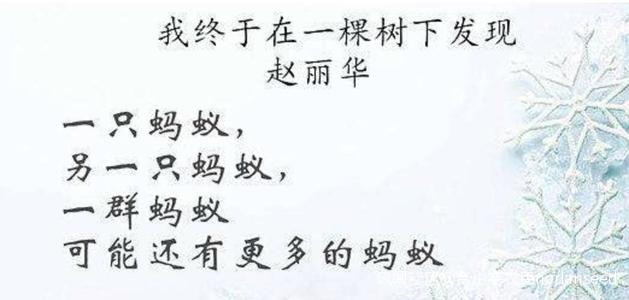 我终于在一棵树下发现
赵丽华
一只蚂蚁，
另一只蚂蚁，
一群蚂蚁
可能还有更多的蚂蚁